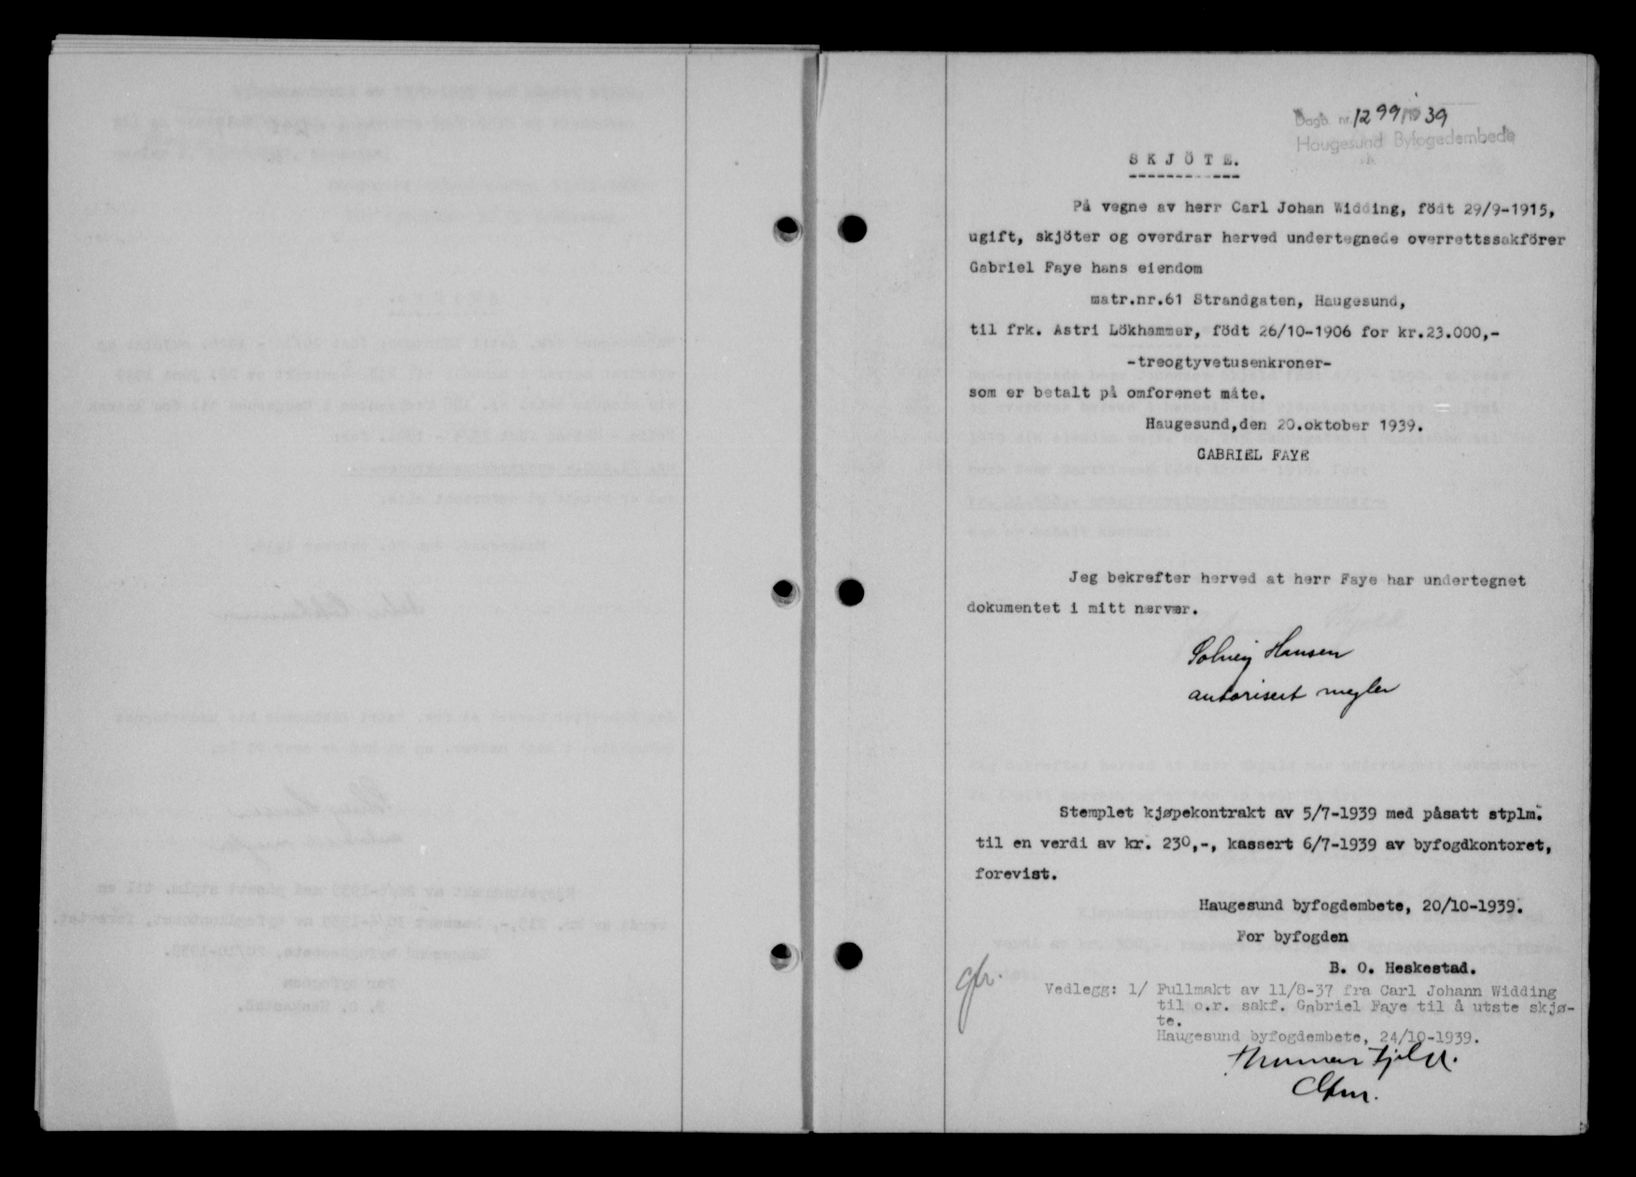 Dagb. nr. 1299/1939
Haugesund Byfogedembede
SKJÖTE.
På vegne av herr Carl Johan Widding, födt 29/9-1915,
ugift, skjöter og overdrar herved undertegnede overrettssakförer
Gabriel Faye hans eiendom
matr.nr.61 Strandgaten, Haugesund,
til frk. Astri Lökhammer, födt 26/10-1906 for kr.23.000,-
-treogtyvetusenkroner-
som er betalt på omforenet måte.
Haugesund,den 20.oktober 1939.
GABRIEL FAYE
Jeg bekrefter herved at herr Faye har undertegnet
dokumentet i mitt nærvær.
Solveig Hansen
autorisert megler
Stemplet kjøpekontrakt av 5/7-1939 med påsatt stplm.
til en verdi av kr. 230,-, kassert 6/7-1939 av byfogdkontoret,
forevist.
Haugesund byfogdembete, 20/10-1939.
For byfogden
B. O. Heskestad.
gfr.
Vedlegg: 1/ Fullmakt av 11/8-37 fra Carl Johann Widding
til o.r. sakf. Gabriel Faye til å utste skjø-
te.
Haugesund byfogdembete, 24/10-1939.